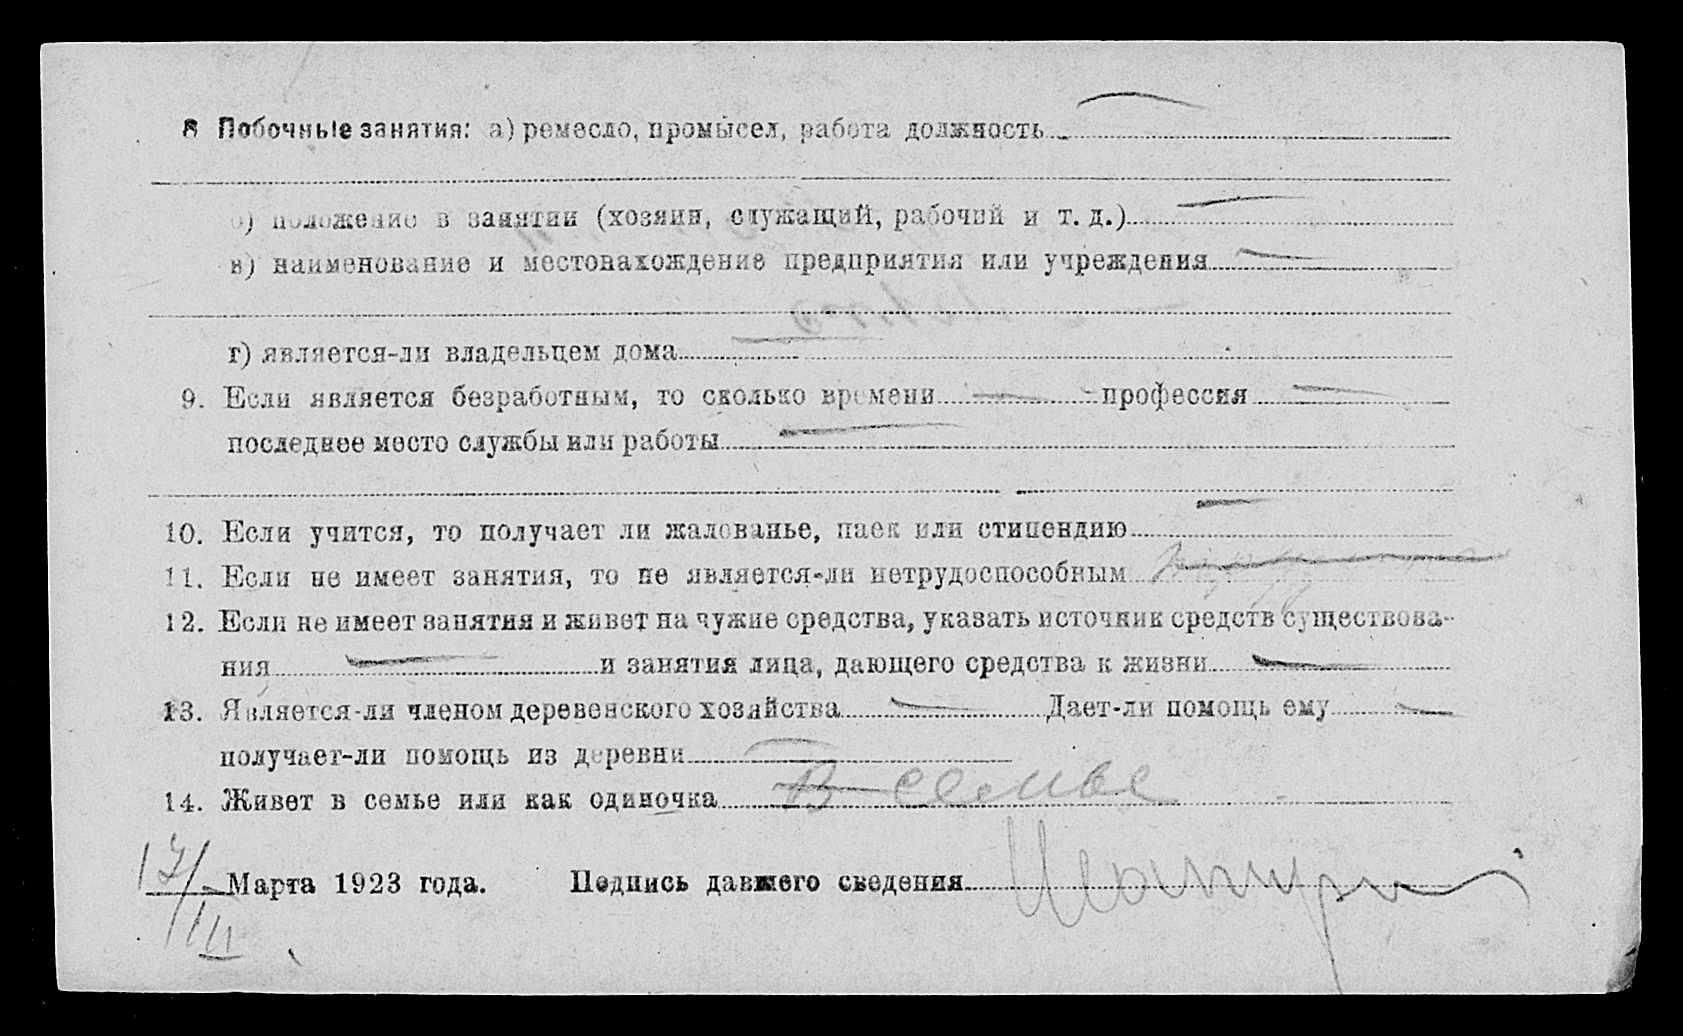 8 Побочные занятия: а) ремесло, промысел, работа должность
б) положение в занятии (хозяин, служащий, рабочий и т. д.)
в) наименование и местонахождение предприятия или учреждения
г) является-ли владельцем дома
9. Если является безработным, то сколько времени — профессия —
последнее место службы или работы —
10. Если учится, то получает ли жалованье, паек или стипендию —
11. Если не имеет занятия, то не является-ли нетрудоспособным
12. Если не имеет занятия и живет на чужие средства, указать источник средств существова-
ния — и занятия лица, дающего средства к жизни —
13. Является-ли членом деревенского хозяйства — Дает-ли помощь ему —
получает-ли помощь из деревни —
14. Живет в семье или как одиночка В семье
17/III Марта 1923 года. Подпись давшего сведения